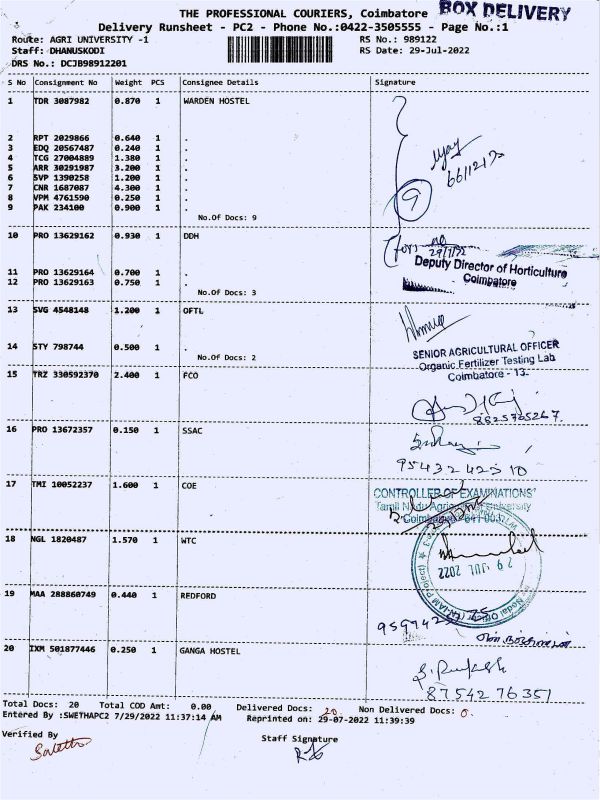 THE PROFESSIONAL COURIERS, Coimbatore BOX DELIVERY
Delivery Runsheet - PC2 - Phone No.:0422-3505555 - Page No.:1
Route: AGRI UNIVERSITY -1 RS No.: 989122
Staff: DHANUSKODI RS Date: 29-Jul-2022
DRS No.: DCJB98912201
S No Consignment No Weight PCS Consignee Details Signature
1 TDR 3087982 0.870 1 WARDEN HOSTEL
2 RPT 2029866 0.640 1 .
3 EDQ 20567487 0.240 1 .
4 TCG 27004889 1.380 1 .
5 ARR 30291987 3.200 1 .
6 SVP 1390258 1.200 1 .
7 CNR 1687087 4.300 1 .
8 VPM 4761590 0.250 1 .
9 PAK 234100 0.900 1 .
9
No.Of Docs: 9
10 PRO 13629162 0.930 1 DDH
29/7/22
Deputy Director of Horticulture
Coimbatore
11 PRO 13629164 0.700 1 .
12 PRO 13629163 0.750 1 .
No.Of Docs: 3
13 SVG 4548148 1.200 1 OFTL
14 STY 798744 0.500 1 .
No.Of Docs: 2
SENIOR AGRICULTURAL OFFICER
Organic Fertilizer Testing Lab
Coimbatore - 13.
15 TRZ 330592370 2.400 1 FCO
8825765267
16 PRO 13672357 0.150 1 SSAC
95432 42510
17 TMI 10052237 1.600 1 COE
CONTROLLER OF EXAMINATIONS
Tamil Nadu Agricultural University
Coimbatore - 641 003.
18 NGL 1820487 1.570 1 WTC
29 JUL 2022
19 MAA 288860749 0.440 1 REDFORD
20 IXM 501877446 0.250 1 GANGA HOSTEL
87542 76351
Total Docs: 20 Total COD Amt: 0.00 Delivered Docs: 20 Non Delivered Docs: 0.
Entered By :SWETHAPC2 7/29/2022 11:37:14 AM Reprinted on: 29-07-2022 11:39:39
Verified By Staff Signature